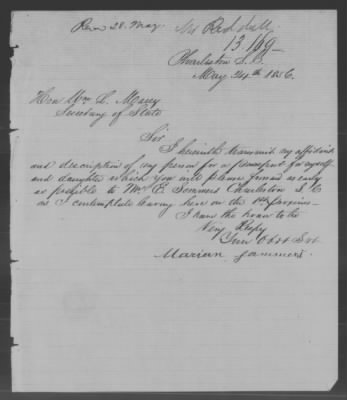 Recd 28. May
Mr Reddall
13.169
Charleston S.C.
May 24th 1856.
Hon Wm L. Marcy
Secretary of State
Sir
I herewith transmit my affidavit
and description of my person for a passport for myself
and daughter which you will please forward as early
as possible to Mr E. Sommers Charleston S.C
as I contemplate leaving here on the 1st proximo -
I have the honor to be
Very Respy
Your Obdt Svt
Marian Sommers.